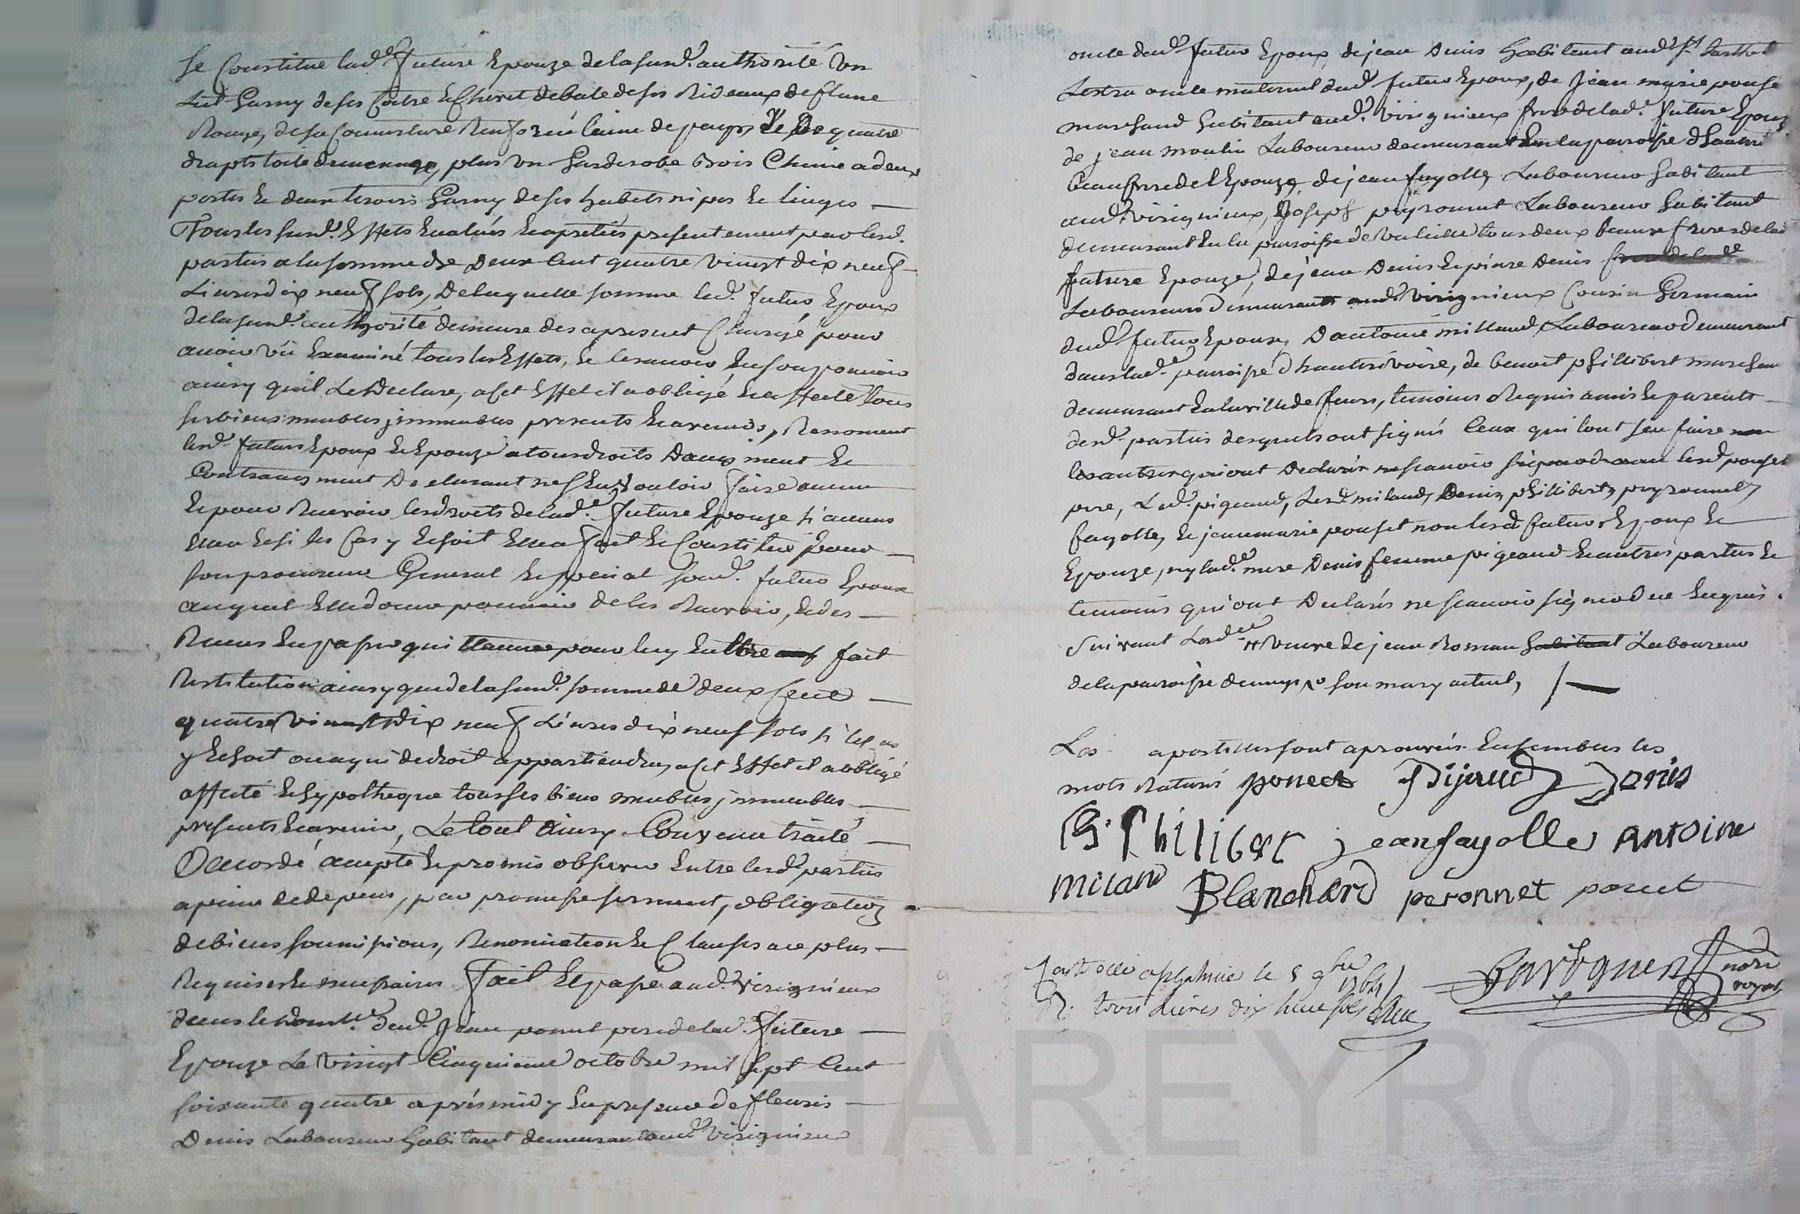 Se Constitue lad.e future Epouze de lasusd.e authorité Un
Lict Garny de ses Coitre & Chevet de bale de ses Rideaux de flane
Rouge, de sa Couverture laine de pays, de quatre
draps toile de mennage, plus un Garderobe bois Chaine a deux
portes & deux tiroirs Garny de ses habits nipes & linges
Tous lesusd. Effets Evalués & apretiés presentement par lesd.
parties a la somme de Deux Cent quatre vingt dix neuf
Livres dix neuf sols, De laquelle somme led. futur Epoux
de lasusd. authorité demeure des apresent Chargé pour
avoir vû Examiné tous les Effets, & les avoir En son pouvoir
ainsy qu'il Le Declare, a Cet Effet il a obligé & affecté tous
ses biens meubles immeubles presents & avenir, Renoncent
lesd. futurs Epoux & Epouze a tous droits Daugment &
Contraugment Declarant n'En Vouloir faire aucun
& pour Recevoir les droits de lad.e future Epouze si aucuns
Elle a & si le Cas y Echoit Elle a fait & Constitué pour
son procureur General & special sond. futur Epoux
auquel Elle donne pouvoir de les Recevoir, & des
Receus En passer quittance pour luy En Etre fait
Restitution ainsy que de lasusd. somme de deux Cent
quatre vingt dix neuf Livres dix neuf sols si le Cas
y Echoit ou a qui de droit appartiendra, a Cet Effet il a obligé
affecté & hypotheque tous ses biens meubles immeubles
presents & avenir, Le tout Ainsy Convenu traité
Dacordé accepté & promis observer Entre lesd. parties
a peine de depens, par promesse serment, obligation
de biens soumisions, Renonciation & Clauses a ce plus
Requises & necessaires fait & passé aud. virignieux
dans le domi.le dud. Jean poncet pere de lad. future
Epouze Le vingt Cinquieme octobre mil sept Cent
soixante quatre apres midy En presence de fleuris
Denis Laboureur habitant demeurant aud. virignieux
oncle dud. futur Epoux de jean Denis habitant aud.
oncle maternel dud. futur Epoux, de jean marie ponset
marchand habitant aud. virignieux frere de lad.e future Epouze
de jean moulin Laboureur demeurant En la paroisse
beaufrere de l'Epouze, de jean fayolle, Laboureur habitant
aud. virignieux, Joseph peyronnet Laboureur habitant
demeurant En la paroisse de valeille tous deux beaux freres de lad.
future Epouze, de jean Denis & pierre Denis
Laboureurs demeurants aud. virignieux Cousin Germain
dud. futur Epoux, D'antoine milland, Laboureur demeurant
dans lad.e paroisse d'hauterivoire, de benoit phillibert marchand
demeurant En la ville de feurs, temoins Requis amis & parents
desd. parties desquels ont signé Ceux qui l'ont sçeu faire
les autres qui ont Declaré ne scavoir lesd. ponset
pere, Led. pigeaud, Lesd. miland, Denis, phillibert, peyronnet,
fayolle, & jean marie ponset non lesd. futurs Epoux &
Epouze, ny lad.e mere Denis femme pigeaud & autres parties &
temoins qui ont Declarés ne scavoir signer de ce Enquis.
Suivant veuve de jean Roman Laboureur
de la paroisse son mary actuel,
Les apostilles sont aprouvées Ensembles les
mots Raturés poncet Pijaud Denis
B. Philibert jean fayolle Antoine
milan Blanchard peronnet poncet
le 5 9bre 1764
R. trois livres dix huit sols
nore
royal